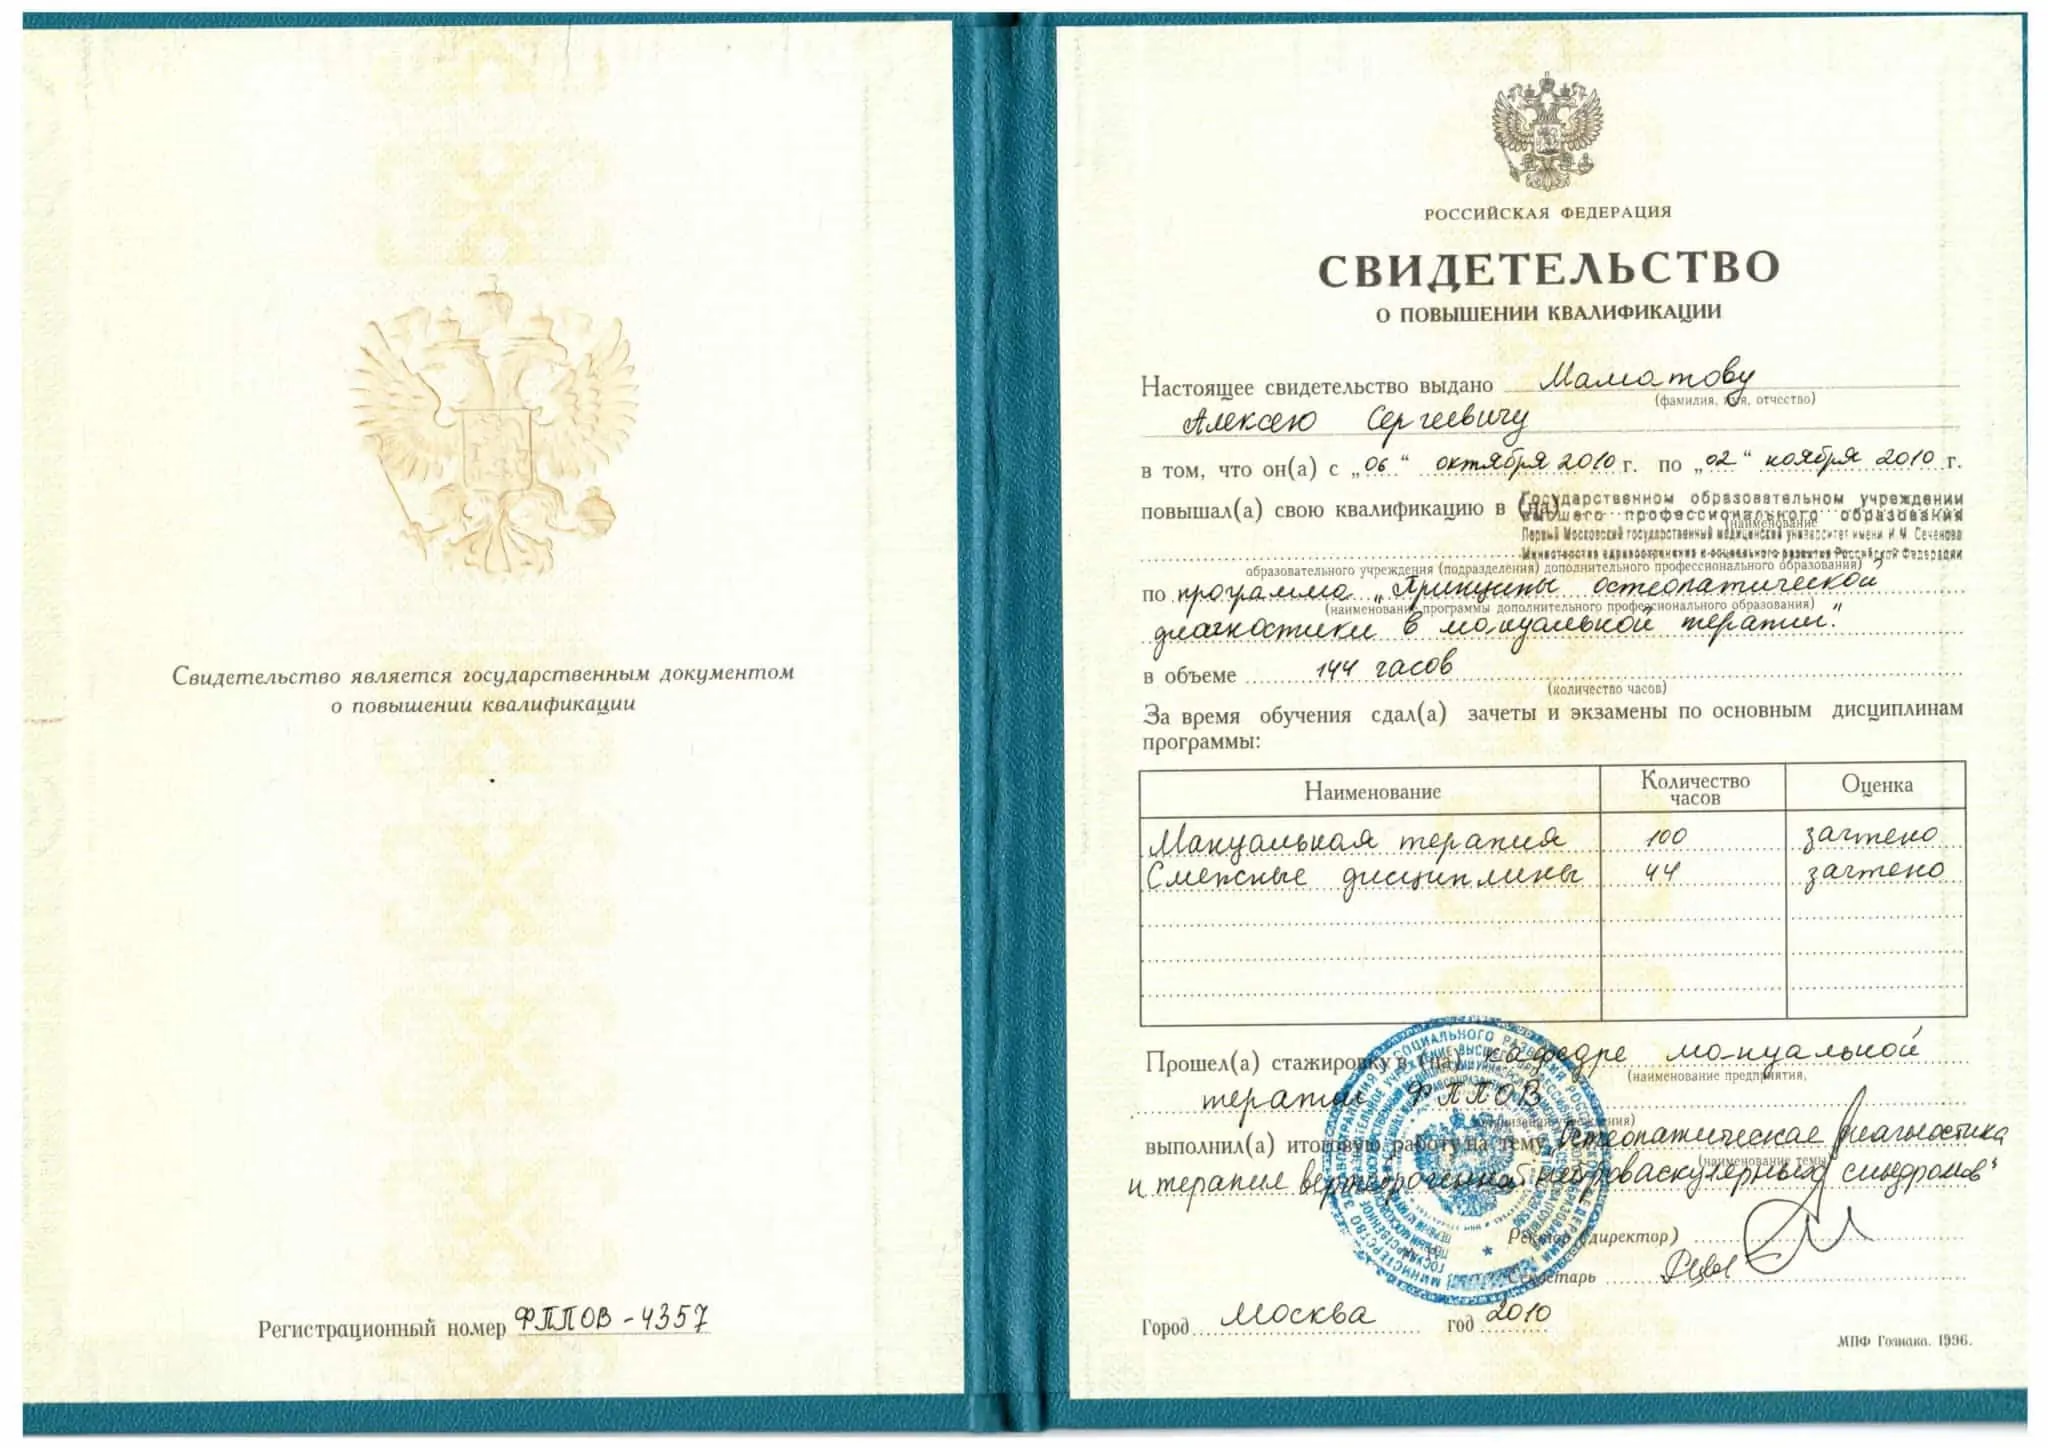 Свидетельство является государственным документом
о повышении квалификации
Регистрационный номер ФППОВ-4357
РОССИЙСКАЯ ФЕДЕРАЦИЯ
СВИДЕТЕЛЬСТВО
О ПОВЫШЕНИИ КВАЛИФИКАЦИИ
Настоящее свидетельство выдано Маматову
(фамилия, имя, отчество)
Алексею Сергеевичу
в том, что он(а) с „06“ октября 2010 г. по „02“ ноября 2010 г.
повышал(а) свою квалификацию в (на) Государственном образовательном учреждении
высшего профессионального образования
(наименование
Первый Московский государственный медицинский университет имени И.М. Сеченова
Министерства здравоохранения и социального развития Российской Федерации
образовательного учреждения (подразделения) дополнительного профессионального образования)
по программе „Принципы остеопатической
(наименование программы дополнительного профессионального образования)
диагностики в мануальной терапии."
в объеме 144 часов
(количество часов)
За время обучения сдал(а) зачеты и экзамены по основным дисциплинам
программы:
Наименование Количество часов Оценка
Мануальная терапия 100 зачтено
Смежные дисциплины 44 зачтено
Прошел(а) стажировку в (на) кафедре мануальной
(наименование предприятия,
терапии ФППОВ
организации, учреждения)
выполнил(а) итоговую работу на тему „Остеопатическая диагностика
(наименование темы)
и терапия нейроваскулярных синдромов"
Ректор (директор)
Секретарь
Город Москва год 2010
МПФ Гознака. 1996.